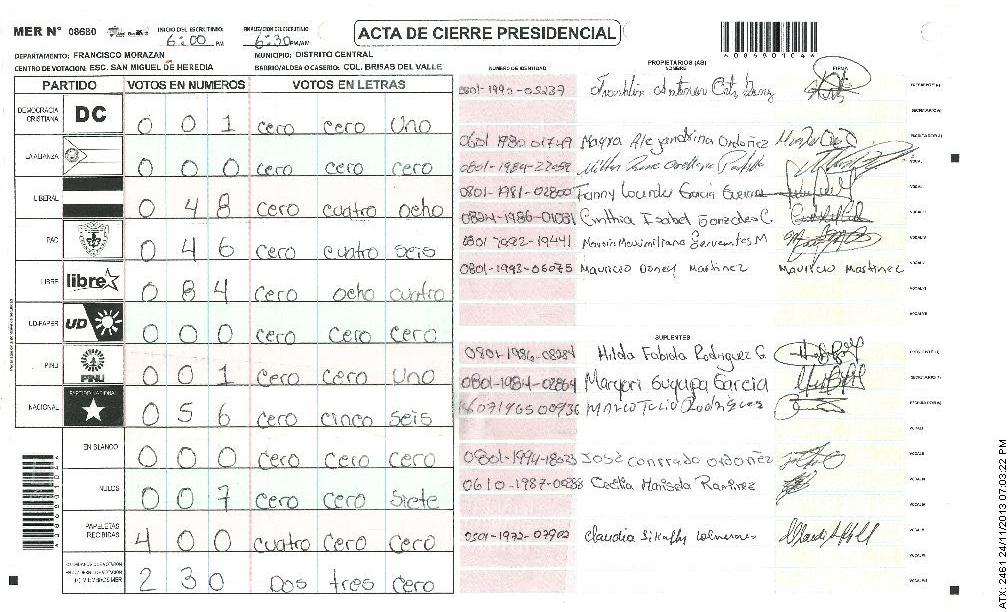 MER N° 08680 INICIO DEL ESCRUTINIO: 6:00 PM FINALIZACION DEL ESCRUTINIO: 6:30 PM/AM ACTA DE CIERRE PRESIDENCIAL
DEPARTAMENTO: FRANCISCO MORAZAN MUNICIPIO: DISTRITO CENTRAL
CENTRO DE VOTACION: ESC. SAN MIGUEL DE HEREDIA BARRIO/ALDEA O CASERIO: COL. BRISAS DEL VALLE
NUMERO DE IDENTIDAD PROPIETARIOS (AS) NOMBRE FIRMA
PARTIDO VOTOS EN NUMEROS VOTOS EN LETRAS
DEMOCRACIA CRISTIANA DC 0 0 1 cero cero uno
LA ALIANZA 0 0 0 cero cero cero
LIBERAL 0 4 8 cero cuatro ocho
PAC 0 4 6 cero cuatro seis
LIBRE libre 0 8 4 cero ocho cuatro
UD-FAPER UD 0 0 0 cero cero cero
PINU PINU 0 0 1 cero cero uno
NACIONAL PARTIDO NACIONAL 0 5 6 cero cinco seis
EN BLANCO 0 0 0 cero cero cero
NULOS 0 0 7 cero cero siete
PAPELETAS RECIBIDAS 4 0 0 cuatro cero cero
2 3 0 Dos tres cero
0801-1990-05237 Franklin Antonio
0601 1980 01749 Mayra Alejandrina Ordoñez
0801-1984-22059
0801-1981-02800 Fanny Lourdes Garcia
Cinthia Isabel Gonzales C.
Maximiliano Cervantes M
0801-1993-06075 Mauricio Doney Martinez Mauricio Martinez
SUPLENTES
0801-1986-08284 Hilda Fabiola Rodriguez G.
0801-1984-02864 Margori Suyapa Garcia
Marco Tulio Rodriguez
0801-1994-18623 José conrrado ordoñez
0610-1987-00888 Cecilia Marisela Ramirez
0501-1972-07902 Claudia
ATX: 2461 24/11/2013 07:03:22 PM